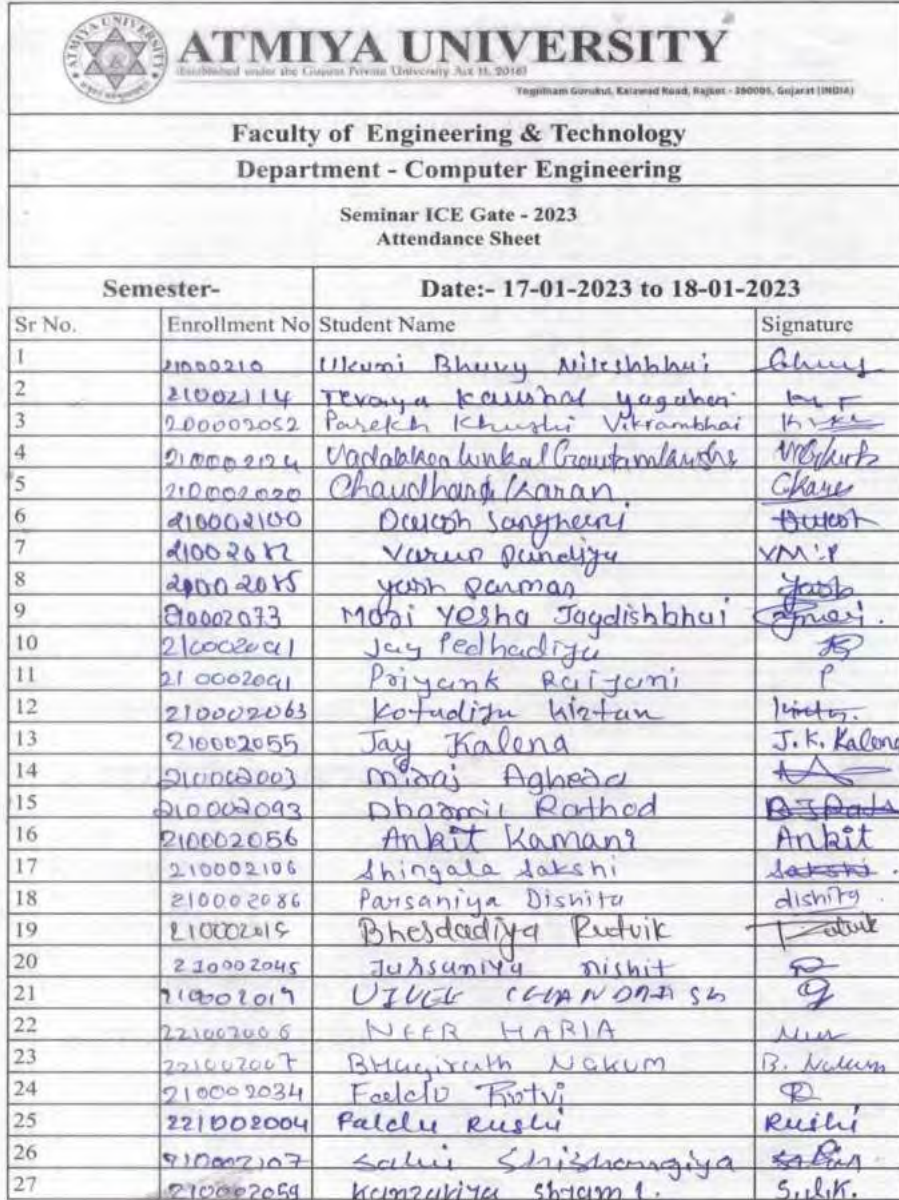 ATMIYA UNIVERSITY
(Established under the Gujarat Private University Act 11, 2018)
Yogidham Gurukul, Kalawad Road, Rajkot - 360005, Gujarat (INDIA)
Faculty of Engineering & Technology
Department - Computer Engineering
Seminar ICE Gate - 2023
Attendance Sheet
Semester- Date:- 17-01-2023 to 18-01-2023
Sr No. Enrollment No Student Name Signature
1 21000210 Ukani Bhuvy Nileshbhai
2 21002114 Tevaiya Kaushal
3 200002052 Parekh Khushi Vikrambhai
4 210002124
5 210002020 Chaudhary Karan
6 210002100 Daksh Sanghani
7 21002082 Varun Pandiya VM.P
8 Yash Parmar Yash
9 210002073 Mori Yesha Jagdishbhai
10 Jay Pedhadiya
11 210002091 Priyank Raiyani P
12 210002063 Kotadiya Kirtan
13 210002055 Jay Kalena J.K. Kalena
14 210002003 Miraj Aghera
15 210002093 Dharmil Rathod
16 210002056 Ankit Kamani Ankit
17 210002106 Shingala Sakshi Sakshi
18 210002086 Parsaniya Dishita dishita
19 Bhesdadiya Rutvik
20 210002045 Jursaniya nishit
21 210002019
22 221002006 NEER HARIA
23 221002007 Bhagirath Nakum B. Nakum
24 210002034 Faldu
25 221002004 Paldu Rushi Rushi
26 210002107
27 210002059 Kamzariya Shyam S.d.K.